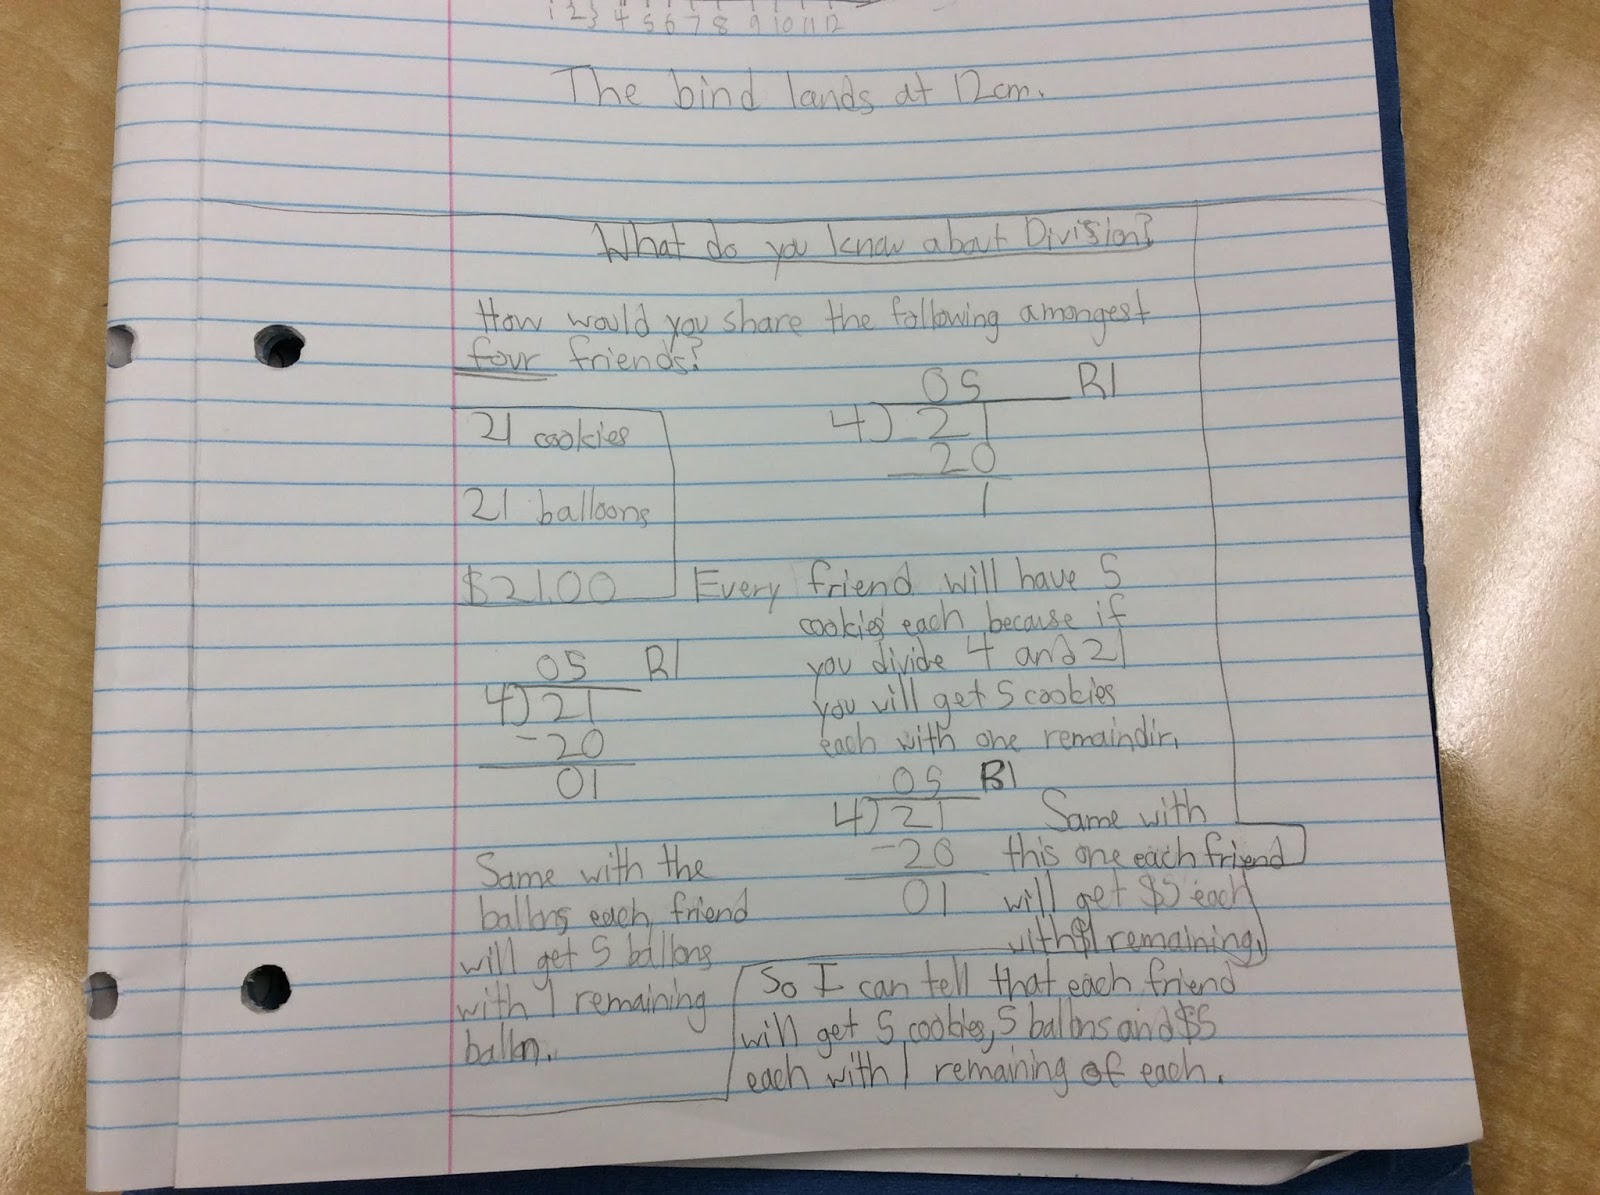 1 2 3 4 5 6 7 8 9 10 11 12
The bird lands at 12cm.
What do you know about Division?
How would you share the following amongest
four friends?
21 cookies
21 balloons
$21.00
05 R1
4)21
20
1
Every friend will have 5
cookies each because if
you divide 4 and 21
you will get 5 cookies
each with one remaindir.
05 R1
4)21
-20
01
Same with the
ballons each friend
will get 5 ballons
with 1 remaining
ballon.
05 R1
4)21
-20
01
Same with
this one each friend
will get $5 each
with $1 remaining.
So I can tell that each friend
will get 5 cookies, 5 ballons and $5
each with 1 remaining of each.